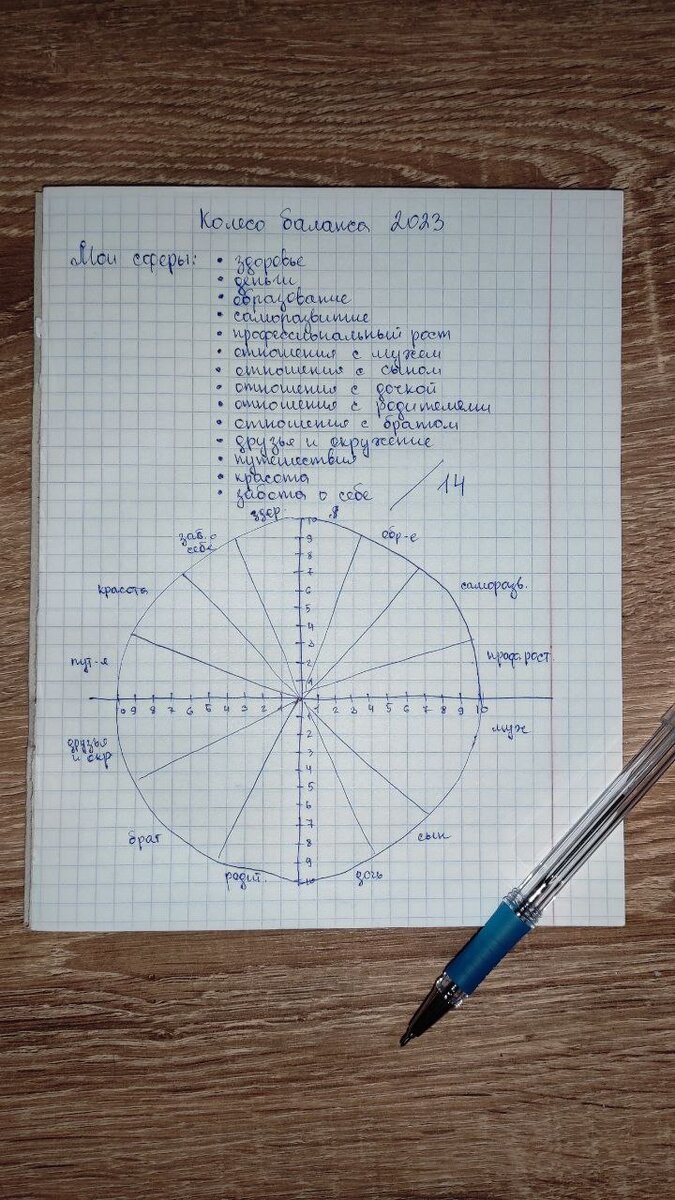 Колесо баланса 2023
Мои сферы: • здоровье
• деньги
• образование
• саморазвитие
• профессиональный рост
• отношения с мужем
• отношения с сыном
• отношения с дочкой
• отношения с родителями
• отношения с братом
• друзья и окружение
• путешествия
• красота
• забота о себе
14
здор.
обр-е
заб. о
себе
саморазв.
красота
проф. рост
пут-я
муж
друзья
и окр
сын
брат
дочь
родит.
10
9
8
7
6
5
4
3
2
1
10 9 8 7 6 5 4 3 2 1 1 2 3 4 5 6 7 8 9 10
1
2
3
4
5
6
7
8
9
10